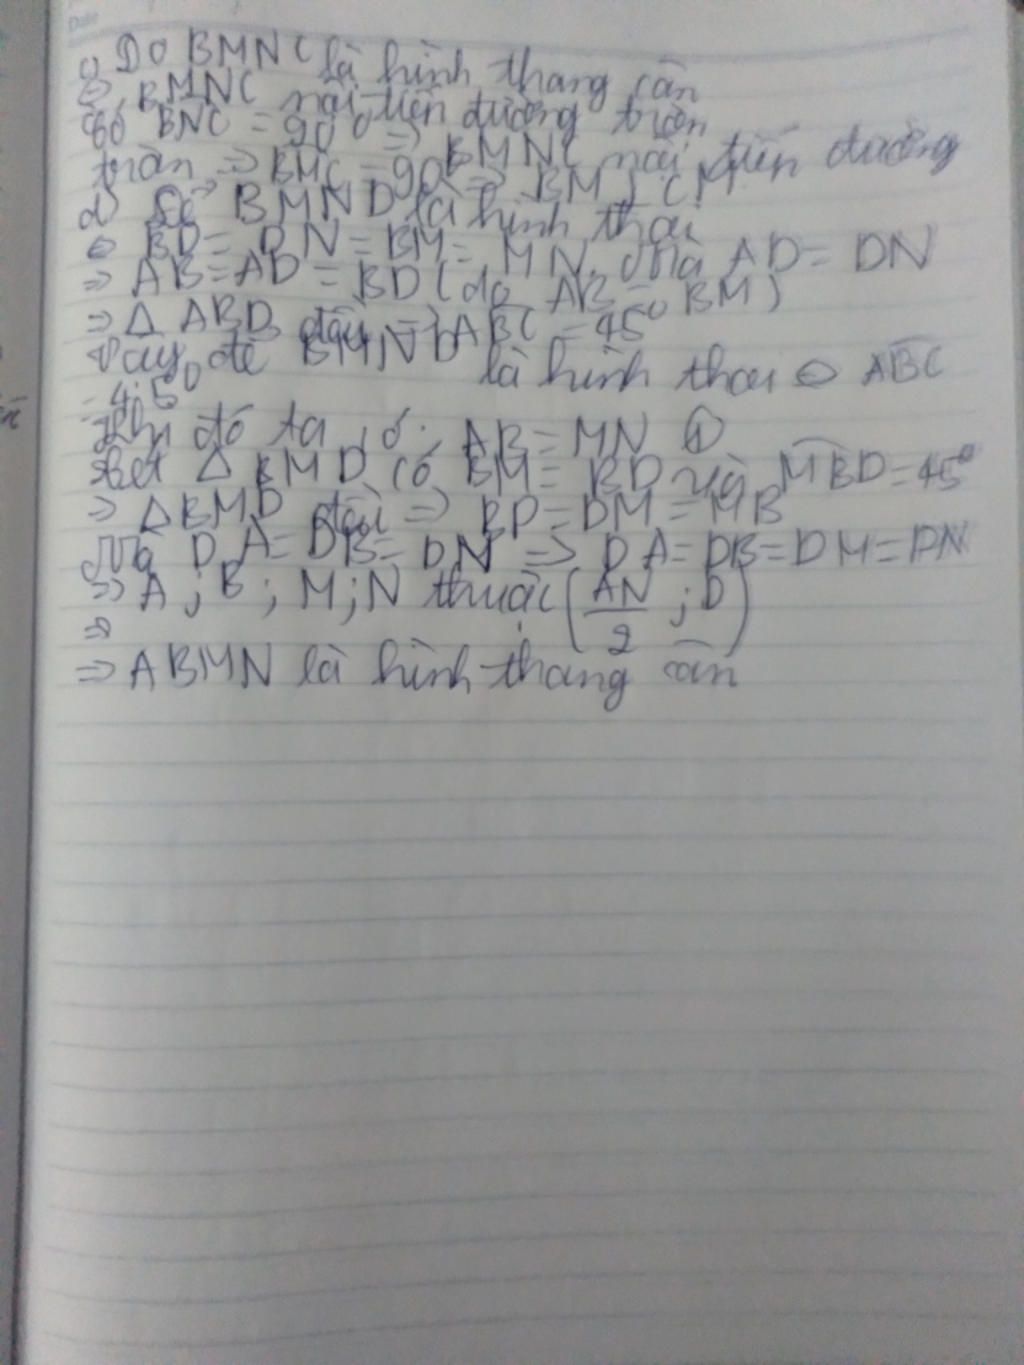 Date
c) Do BMNC là hình thang cân
⇔ BMNC nội tiếp đường tròn
Có BNC = 90° ⇒ BMNC nội tiếp đường
tròn ⇒ BMC = 90° ⇒ BM ⊥ CM
d) Để BMND là hình thoi
⇔ BD = DN = BM = MN. Mà AD = DN
⇒ AB = AD = BD (do AB = BM)
⇒ Δ ABD đều ⇒ ABC = 45°
Vậy để BMND là hình thoi ⇔ ABC
= 45°
Khi đó ta có: AB = MN ①
Xét Δ BMD có BM = BD và MBD = 45°
⇒ Δ BMD đều ⇒ BD = DM = MB
Mà DA = DB = DN ⇒ DA = DB = DM = DN
⇒ A; B; M; N thuộc (AN/2 ; D)
⇒
⇒ ABMN là hình thang cân